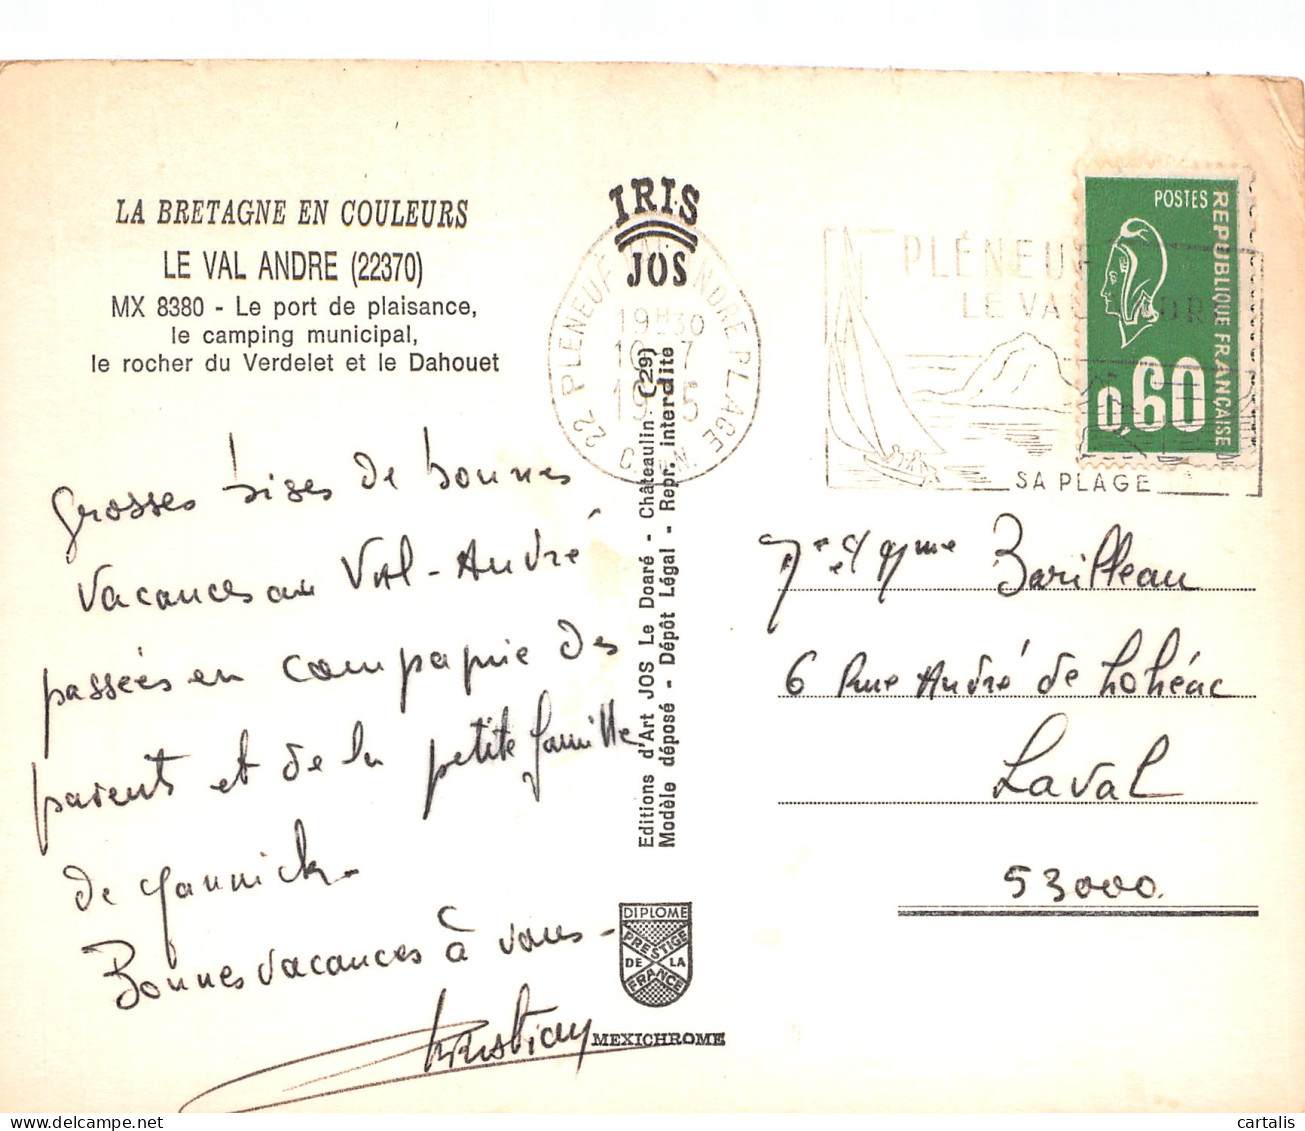 LA BRETAGNE EN COULEURS
LE VAL ANDRE (22370)
MX 8380 - Le port de plaisance,
le camping municipal,
le rocher du Verdelet et le Dahouet
Grosses bises de bonnes
vacances au Val-André
passées en compagnie des
parents et de la petite famille
de Yannick.
Bonnes vacances à vous -
Christian
IRIS
JOS
22 PLENEUF VAL ANDRE PLAGE
19H30
Editions d'Art JOS Le Doaré - Châteaulin (29)
Modèle déposé - Dépôt Légal - Repr. interdite
DIPLOME
PRESTIGE
DE LA
FRANCE
MEXICHROME
PLÉNEUF
LE VAL ANDRE
SA PLAGE
POSTES
REPUBLIQUE FRANÇAISE
0,60
Mr et Mme Barilleau
6 Rue André de Lohéac
Laval
53000.
cartalis